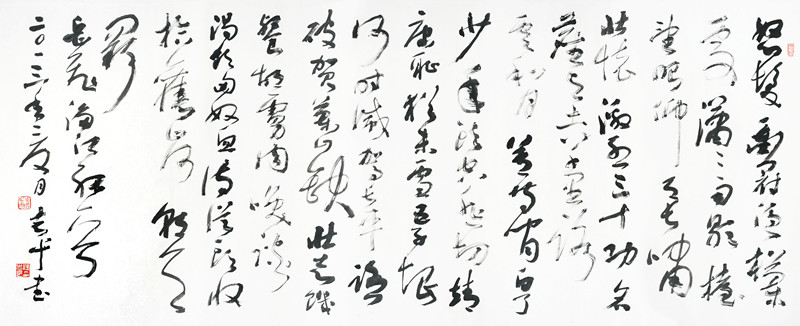 怒髮衝冠憑欄
處瀟瀟雨歇擡
望眼仰天長嘯
壯懷激烈三十功名
塵與土八千里路
雲和月莫等閒白了
少年頭空悲切靖
康恥猶未雪臣子恨
何時滅駕長車踏
破賀蘭山缺壯志飢
餐胡虜肉笑談
渴飲匈奴血待從頭收
拾舊山河朝天
闕
岳飛滿江紅一首
二〇一三年月書